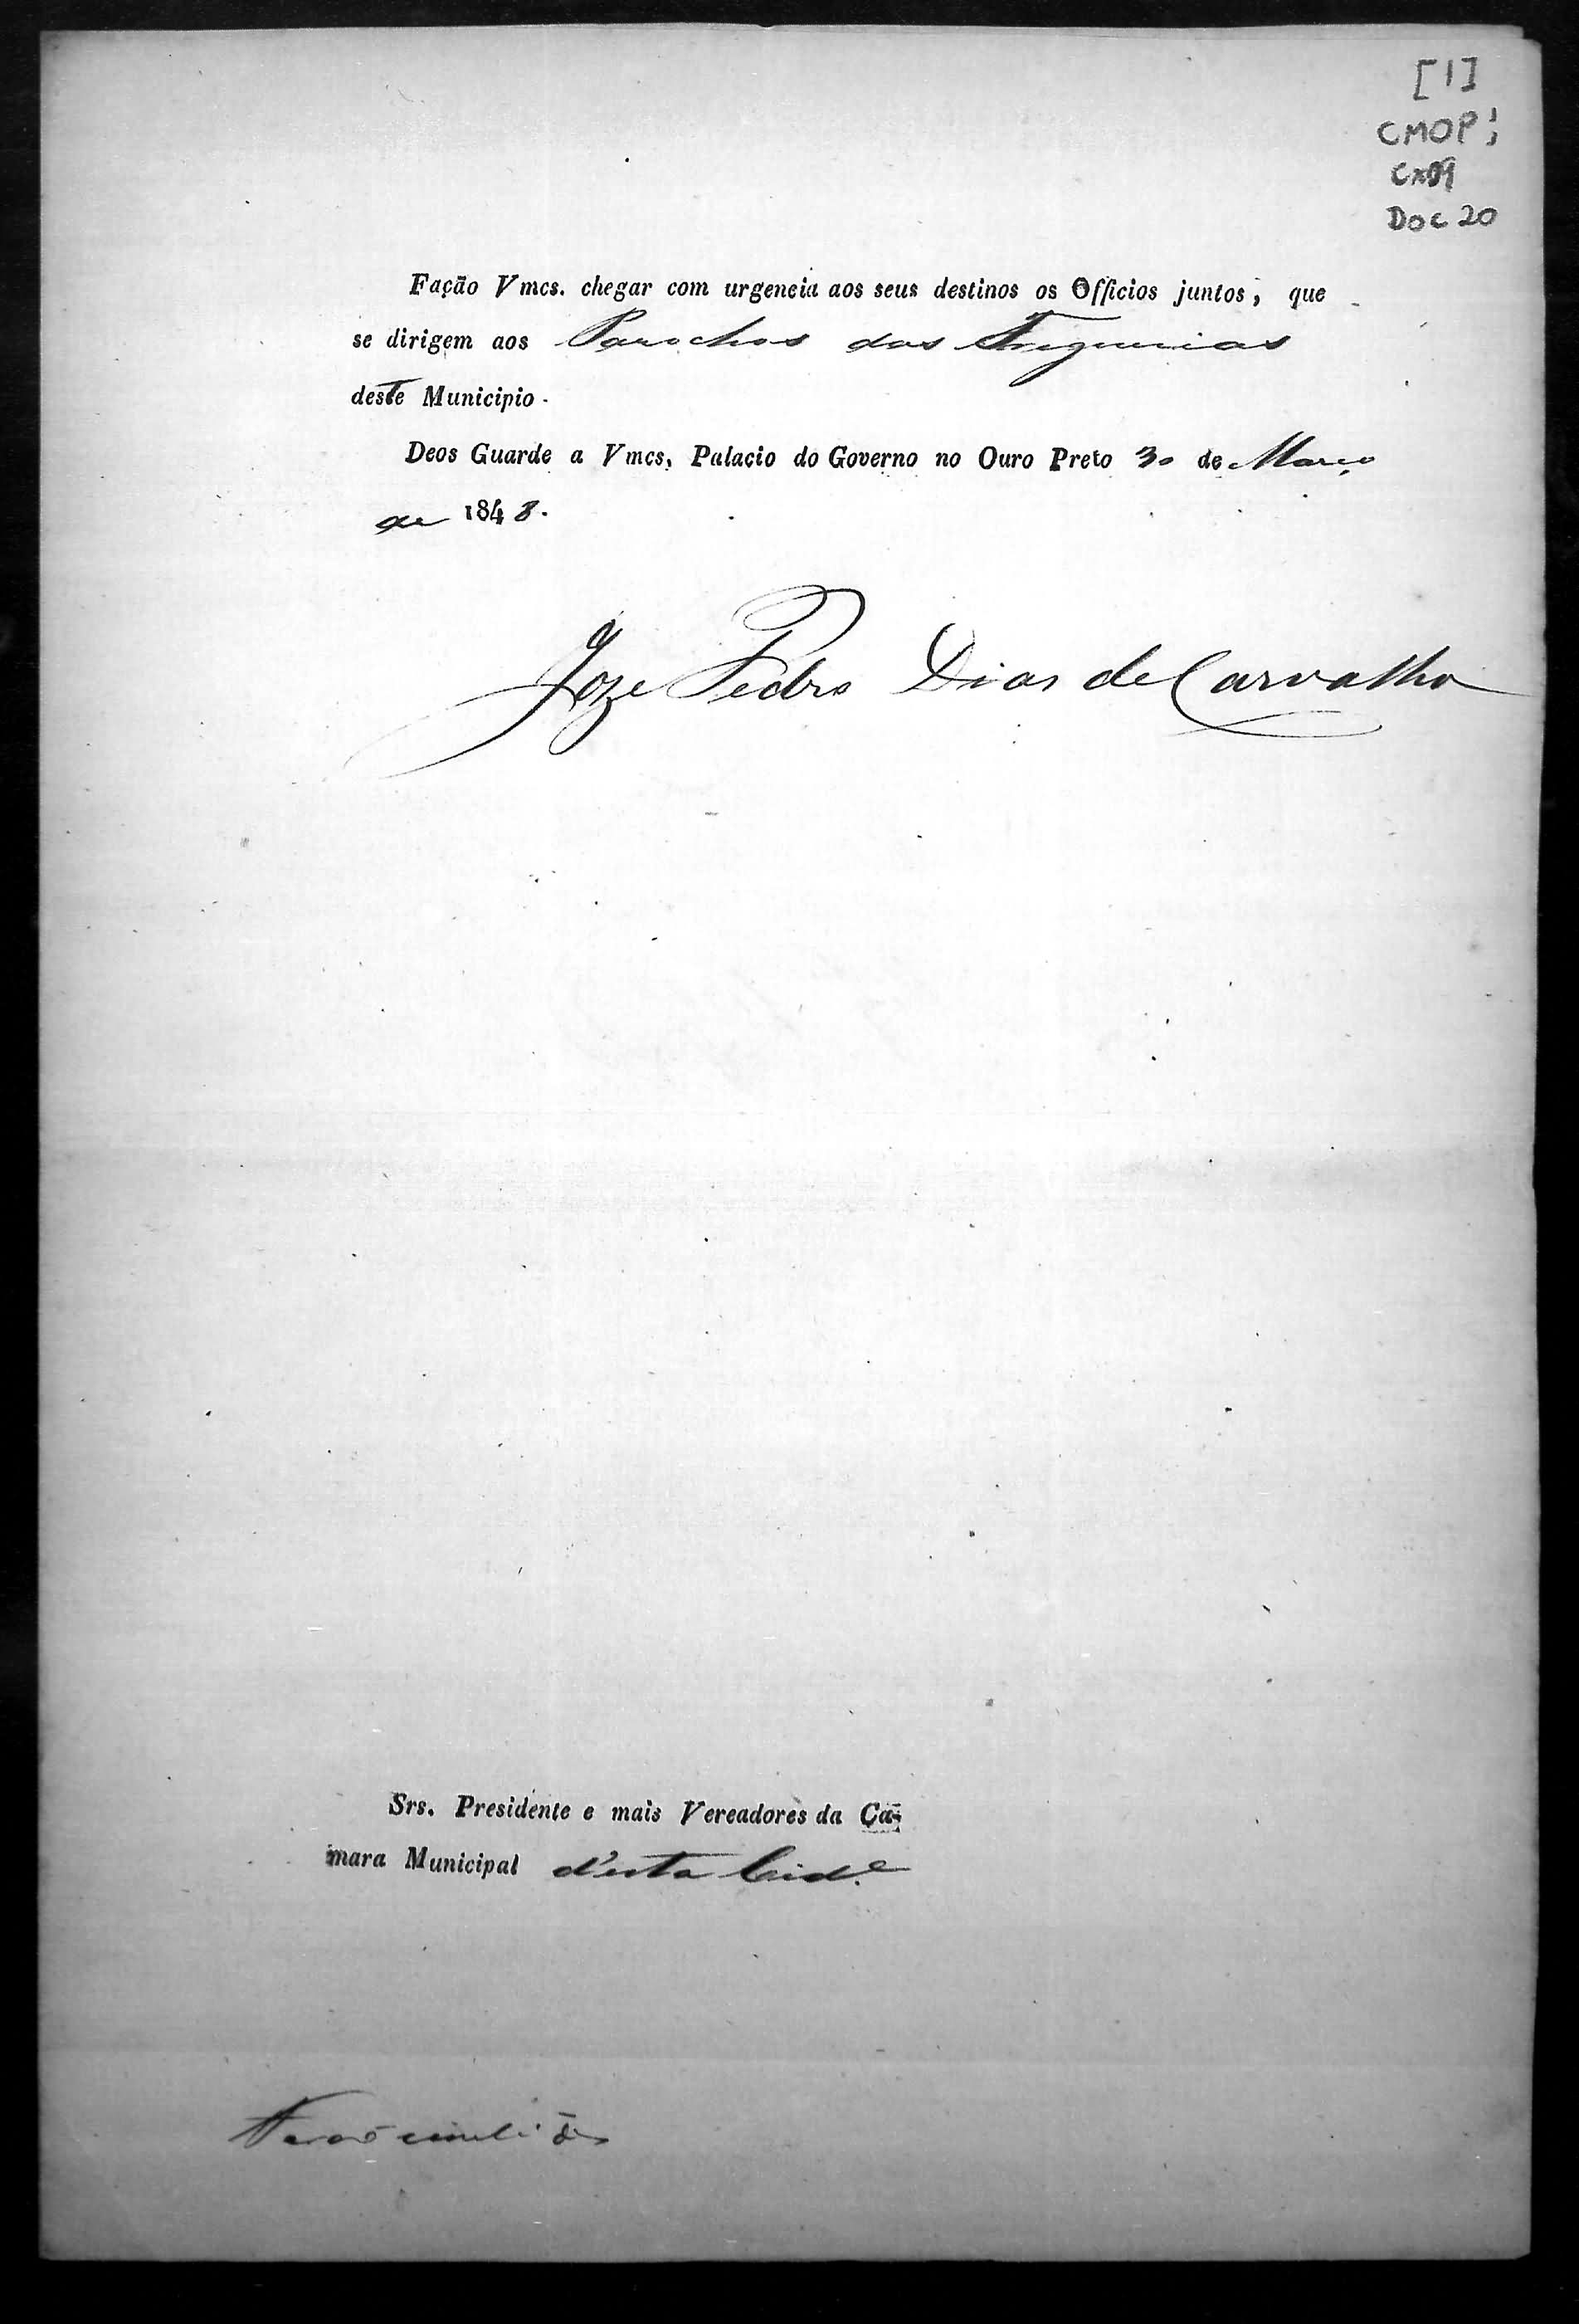 [1]
CMOP;
Cx09
Doc 20
Fação Vmcs. chegar com urgencia aos seus destinos os Officios juntos, que
se dirigem aos Parochos das Freguezias
deste Municipio.
Deos Guarde a Vmcs, Palacio do Governo no Ouro Preto 30 de Março
de 1848.
Joze Pedro Dias de Carvalho
Srs. Presidente e mais Vereadores da Ca-
mara Municipal d'esta Cid.e